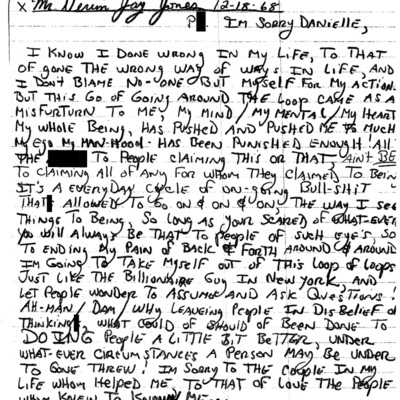 x Mr Derum Jay Jones 12-18-68
P I'm Sorry Danielle,
I know I done wrong in my life, to that
of gone the wrong way of ways in life, and
I don't blame no-one but myself for my action.
But this go of going around the loop came as a
misfurturn to me, my mind / my mental / my heart
my whole being, has pushed and pushed me to much
my ego my man-hood has been punished enough all
the to people claiming this or that, ain't be
to claiming all of any for whom they claimed to bein
it's a everyday cycle of on-going bull-shit
that allowed to go on & on & on the way I see
things to being, so long as your scared of what-ever
you will always be that to people of such eye's, so
to ending my pain of back & forth around & around
I'm going to take myself out of this loop of loops
just like the billionaire guy in New York, and
let people wonder to assume and ask questions!
Ah-man / dam / why leaveing people in disbelief of
thinking, what could of should of been done to
doing people a little bit better, under
what-ever circumstances a person may be under
to gone threw! I'm sorry to the couple in my
life whom helped me, to that of love the people
whom knew to know me